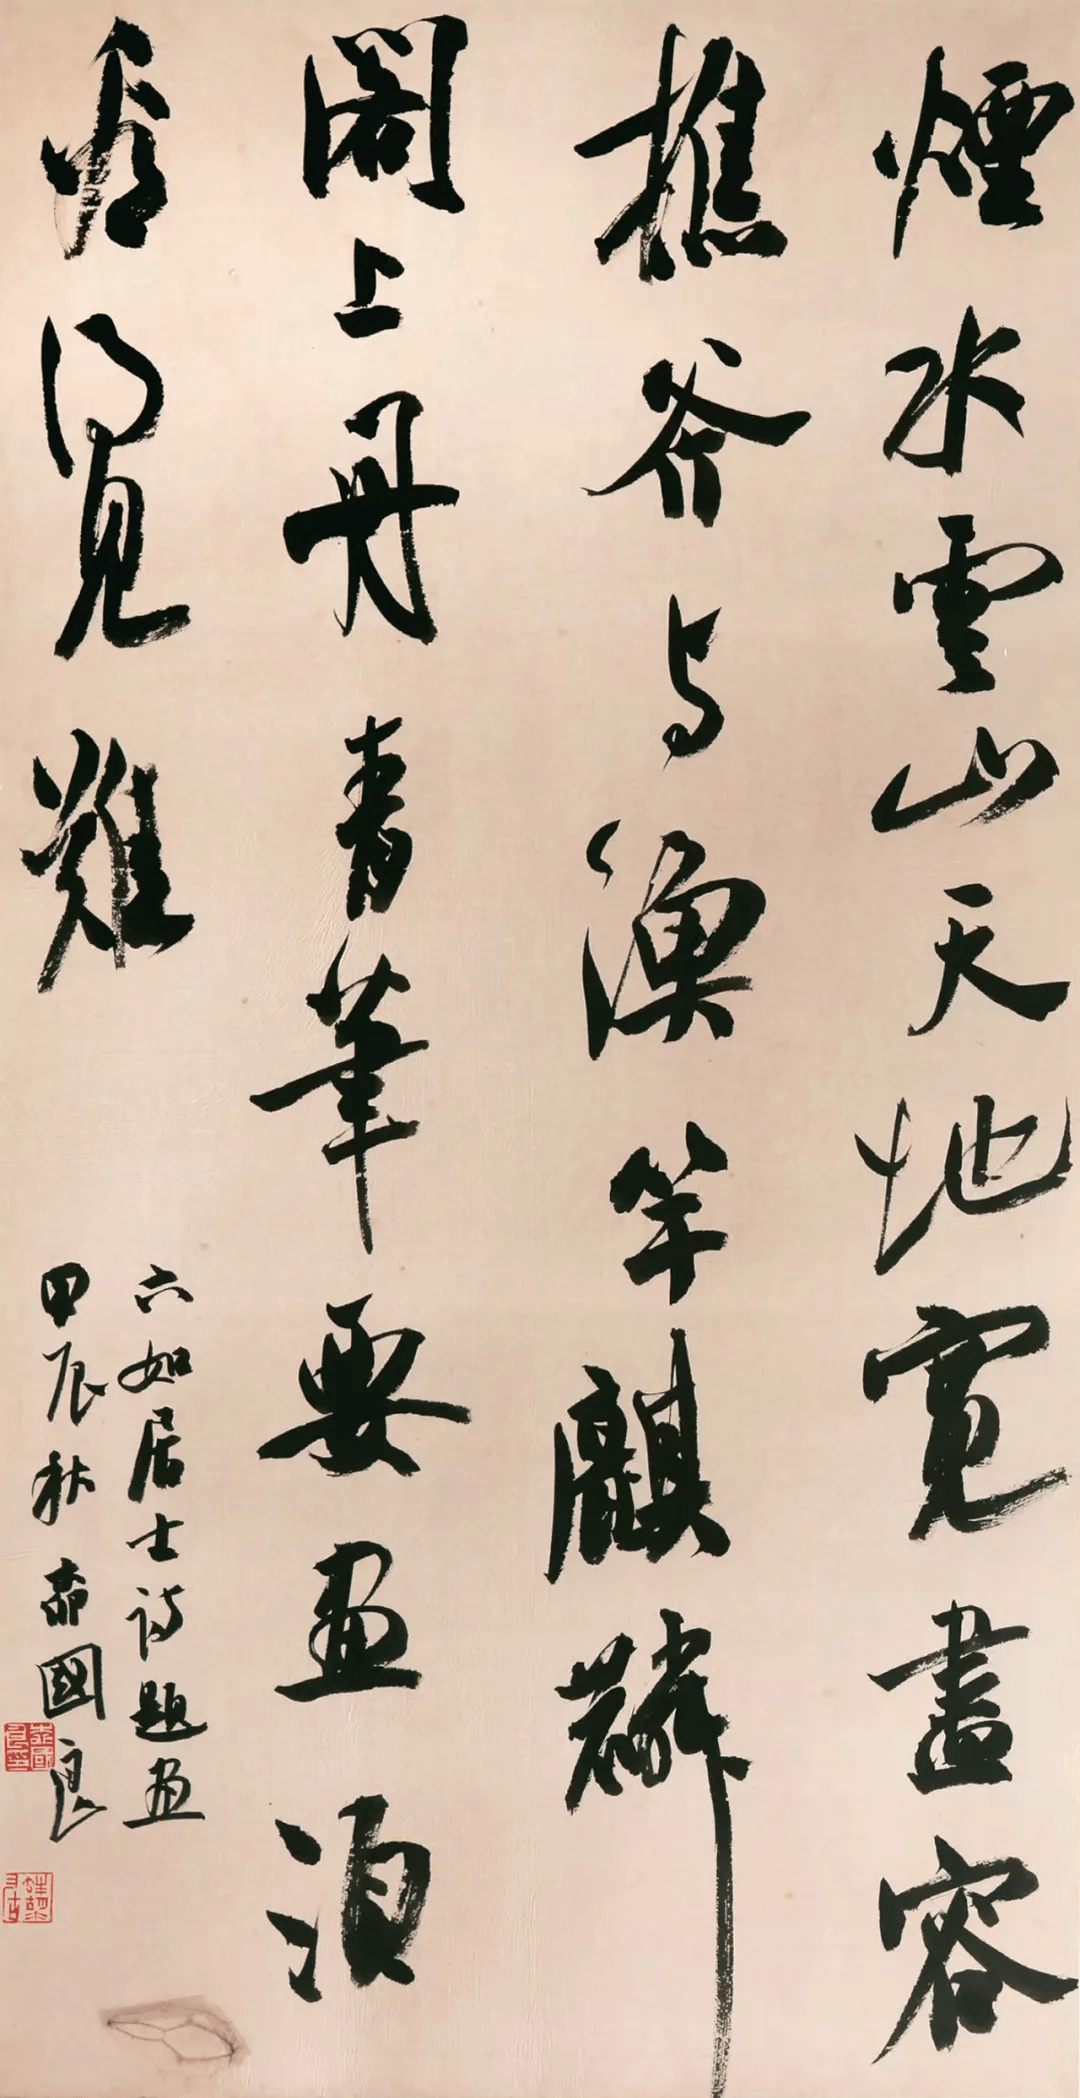 煙水雲山天地寬盡容
樵斧与漁竿麒麟
閣上丹青筆要画須
眉得見難
六如居士詩題画
甲辰秋國良